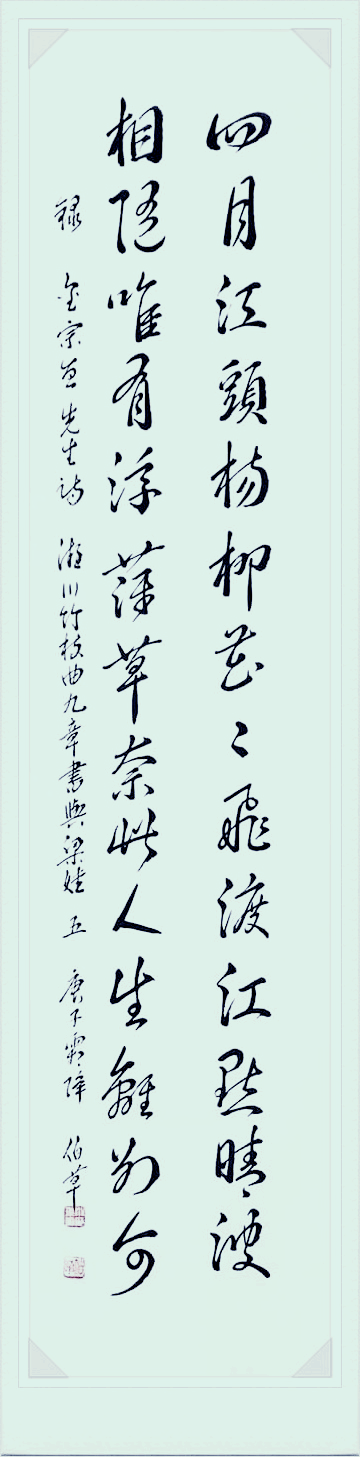 四月江頭楊柳花〻飛渡江點晴波
相隨唯有浮萍草奈此人生離別何
祿 金宗直先生詩 凝川竹枝曲九章書與梁娃 五 庚子霜降 伯草